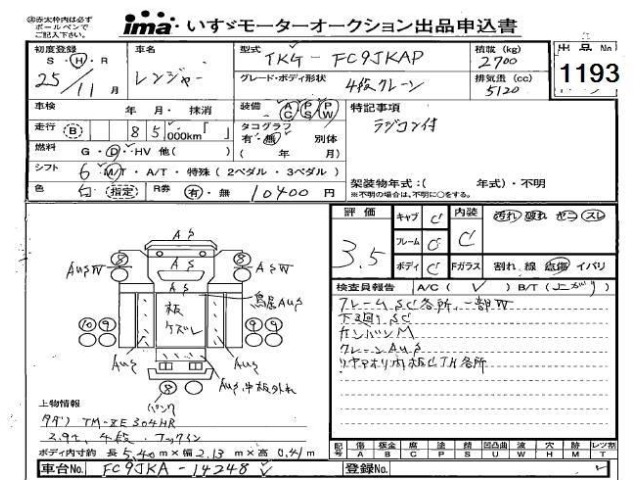 ㊟赤太枠内は必ず
ボールペンで
ご記入下さい。
ima いすゞモーターオークション出品申込書
初度登録 車名 型式 TKG-FC9JKAP 積載(kg) 出品No
S・H・R レンジャー 2700 1193
25/11月 グレード・ボディ形状 4段クレーン 排気量(cc) 5120
車検 年 月・ 抹消 装備 AC PS PW 特記事項
走行 (B) 85,000km「 」 タコグラフ 有・無 別体 ラジコン付
燃料 G・D・HV 他( ) ( 年 月)
シフト 6 M/T・A/T・特殊(2ペダル・3ペダル)
色 白 (指定) R券 有・無 10400円 架装物年式:( 年式)・不明
※不明の場合は、不明に○をする。
評価 3.5 キャブ C 内装 C 汚れ 破れ ゼコ スレ
フレーム C
ボディ C Fガラス 割れ 線 点傷 イバリ
検査員報告 A/C( ✓ ) B/T(上がり)
フレームSC各所、一部W
下廻りSC
カンバンM
クレーンAUS
リヤアオリ内板凸TH各所
AS
AS
8 8
AUSW AUSW
板
ケズレ
鳥居AUS
10 9 9 9
AUS AUS
AUS,中板外れ
8
パンク
上物情報
タダノ TM-ZE304HR
2.9t、4段・フックイン
ボディ内寸約 長5.40m×幅2.13m×高0.41m
記号 傷 A 板金 B 腐 C 塗 P 錆 S 凹凸曲 U 波 W 穴 H 跡 M レンズ割 T
車台No. FC9JKA-14248 登録No.